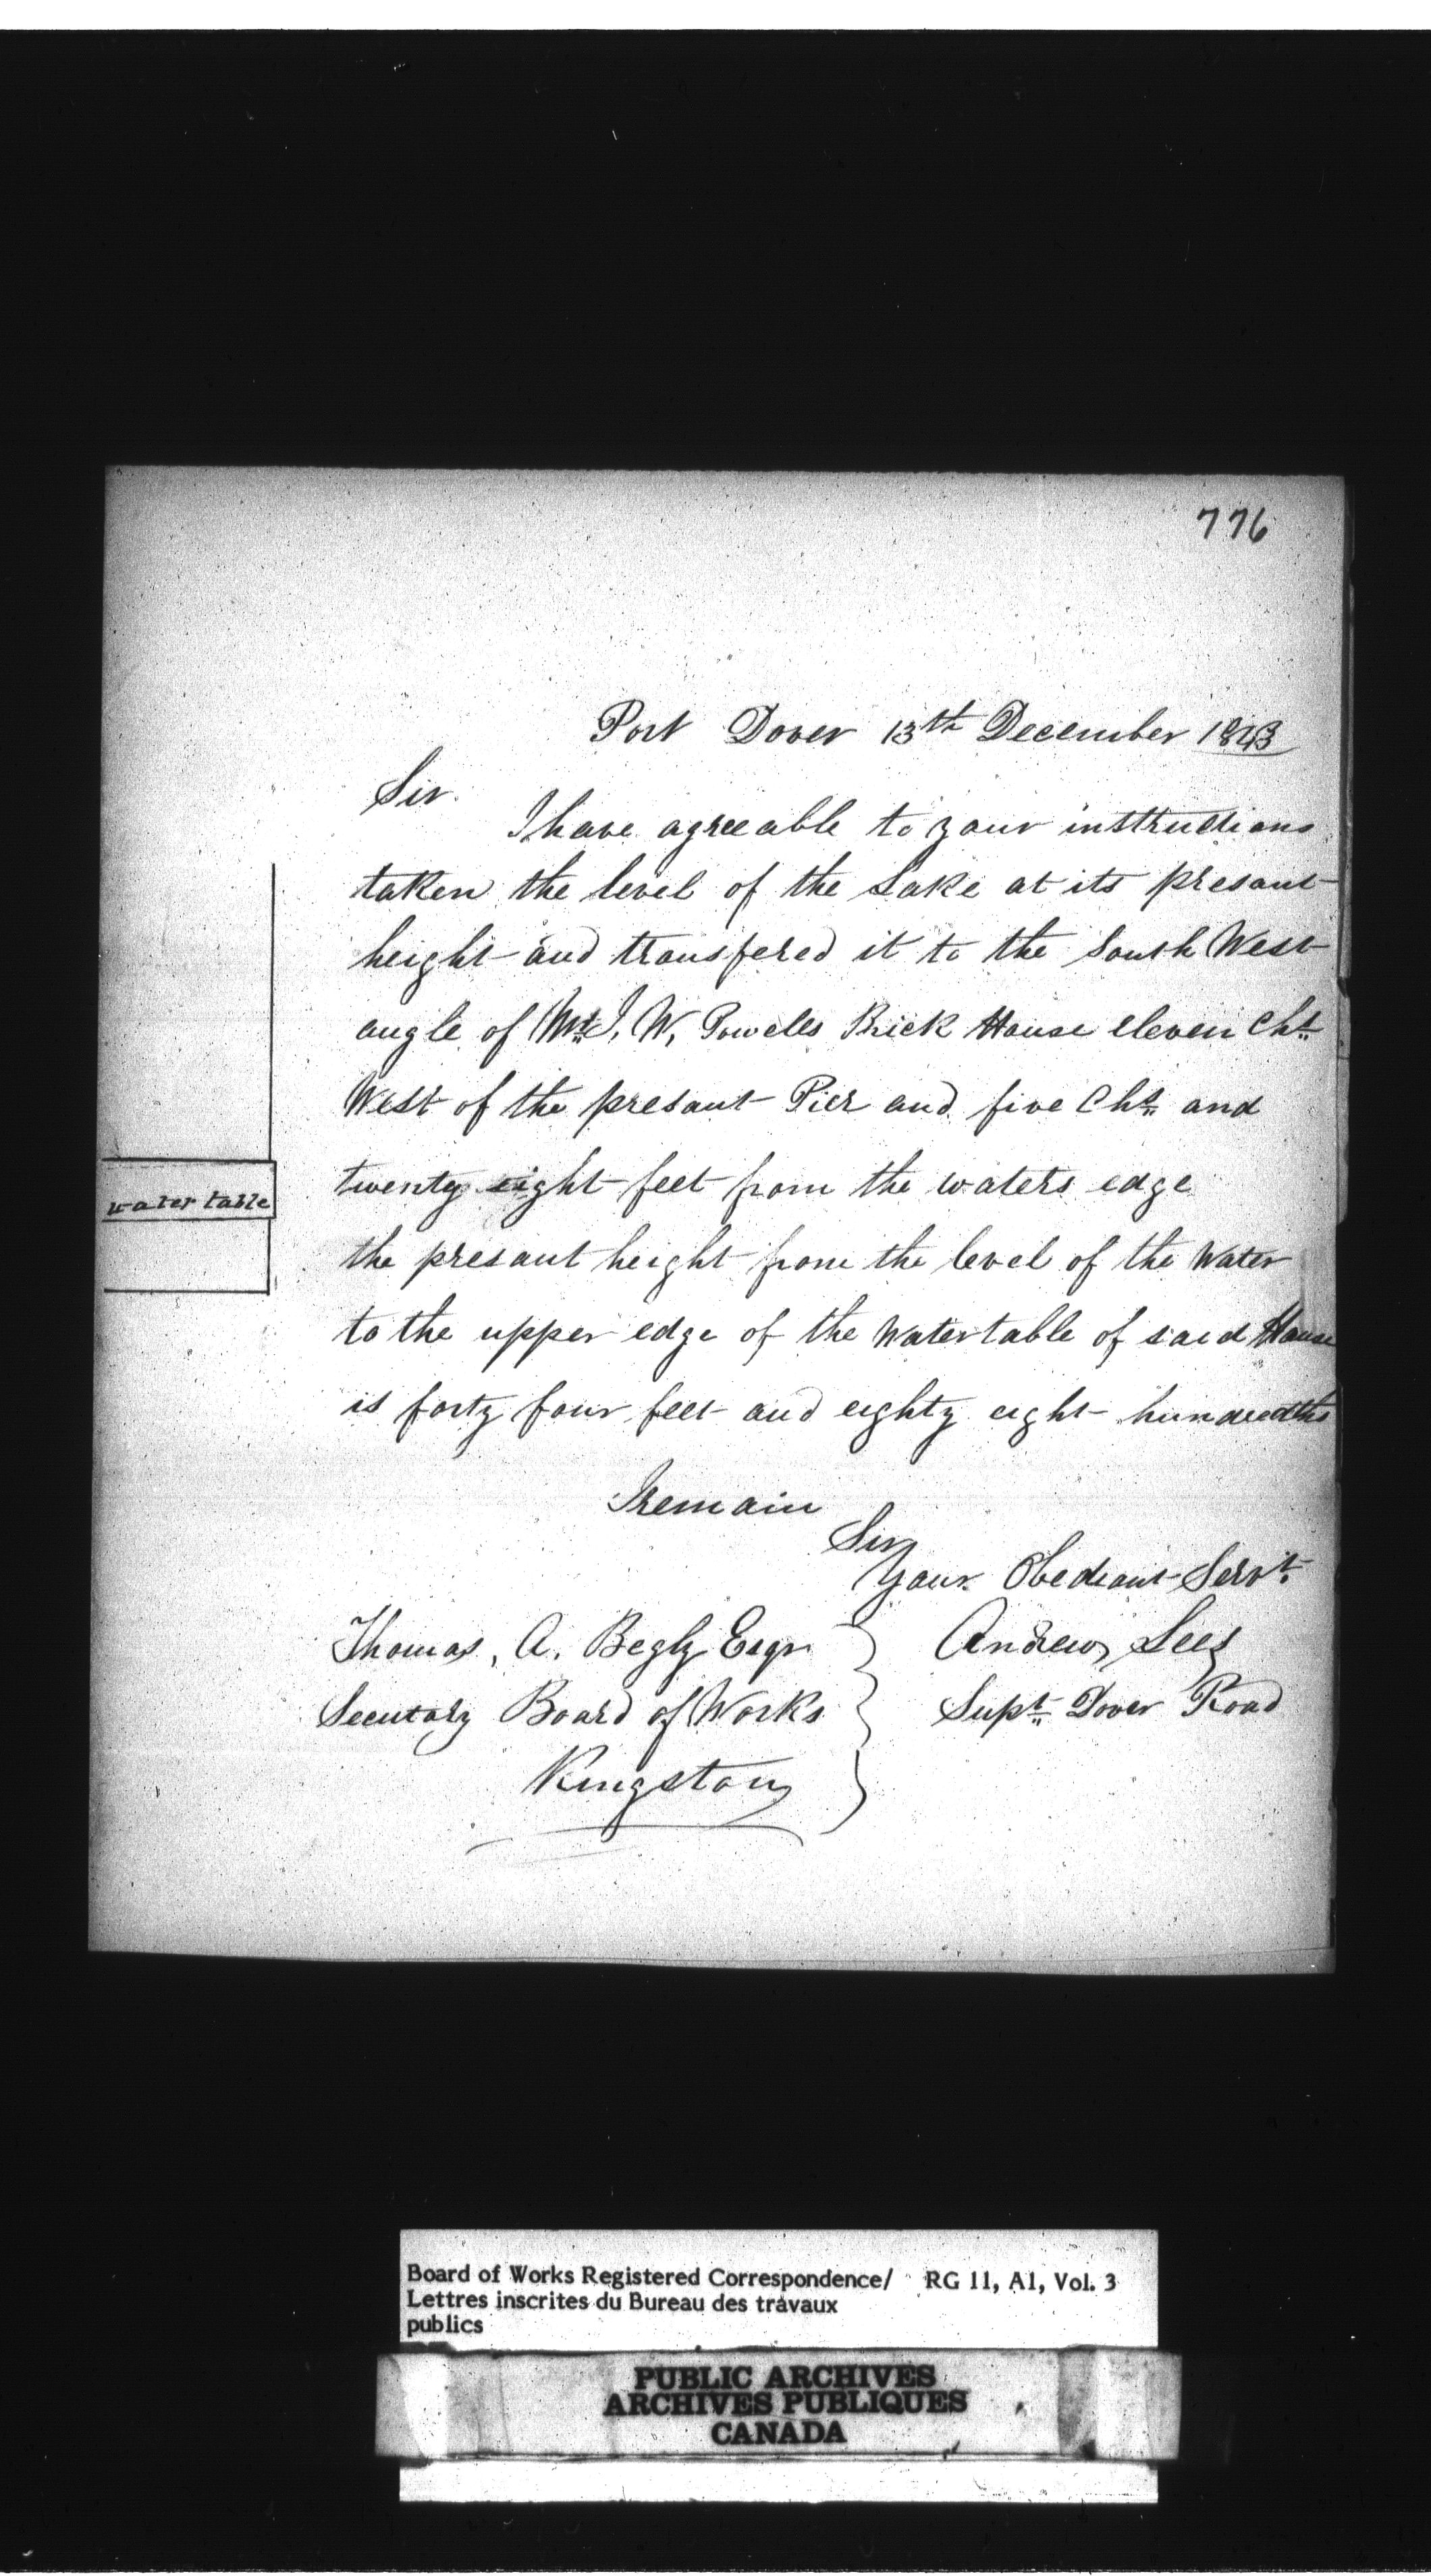 776
Port Dover 13th December 1843
Sir.
I have agreeable to your instructions
taken the level of the Lake at its presant
height and transfered it to the South West
angle of Mr. I, W, Powells Brick House eleven Chs.
West of the presant Pier and five Chs. and
twenty eight feet from the waters edge
the presant height from the level of the Water
to the upper edge of the Watertable of said House
is forty four feet and eighty eight hundredths
water table
I remain
Sir
Your Obediant Servt.
Thomas, A. Begly Esqr
Andrew Lees
Secutary Board of Works
Supt. Dover Road
Kingston
Board of Works Registered Correspondence/ RG 11, A1, Vol. 3
Lettres inscrites du Bureau des travaux
publics
PUBLIC ARCHIVES
ARCHIVES PUBLIQUES
CANADA